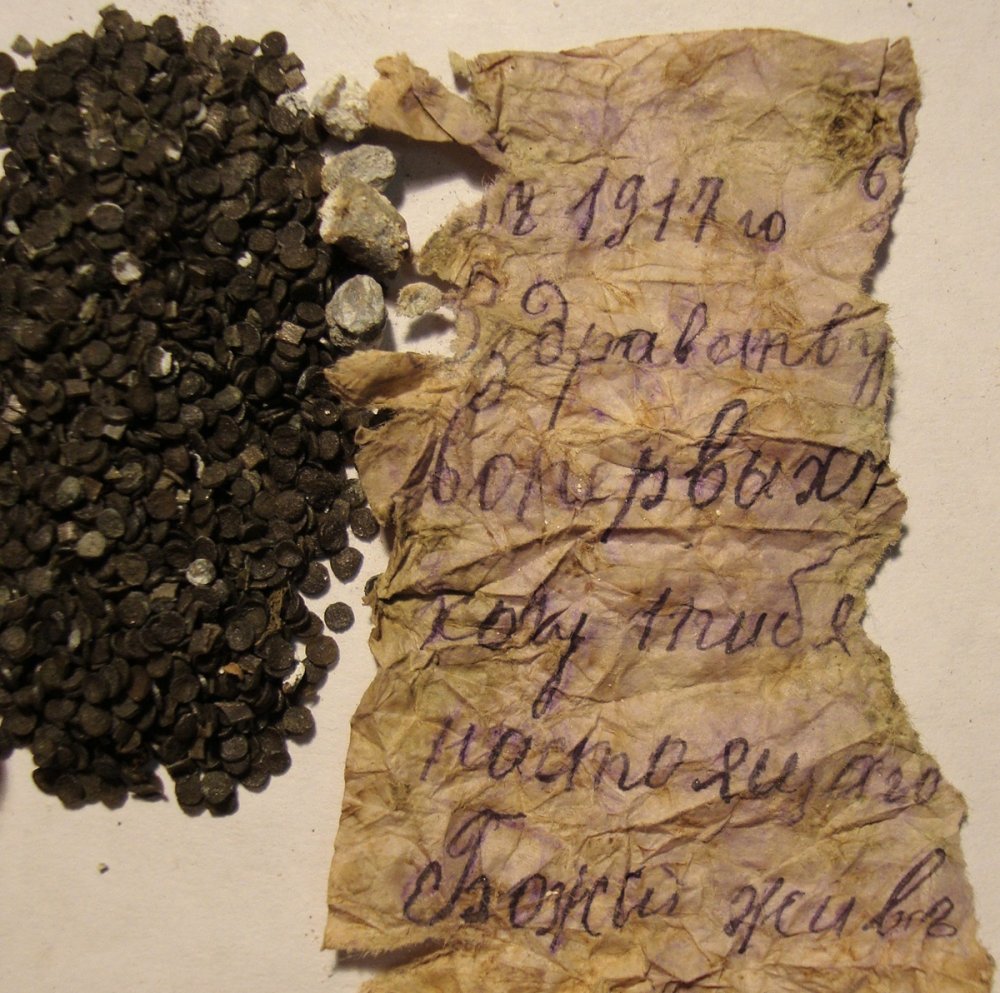 1917 го
Здравству
вопервыхъ
хочу тибе
настоящаго
Божий живъ